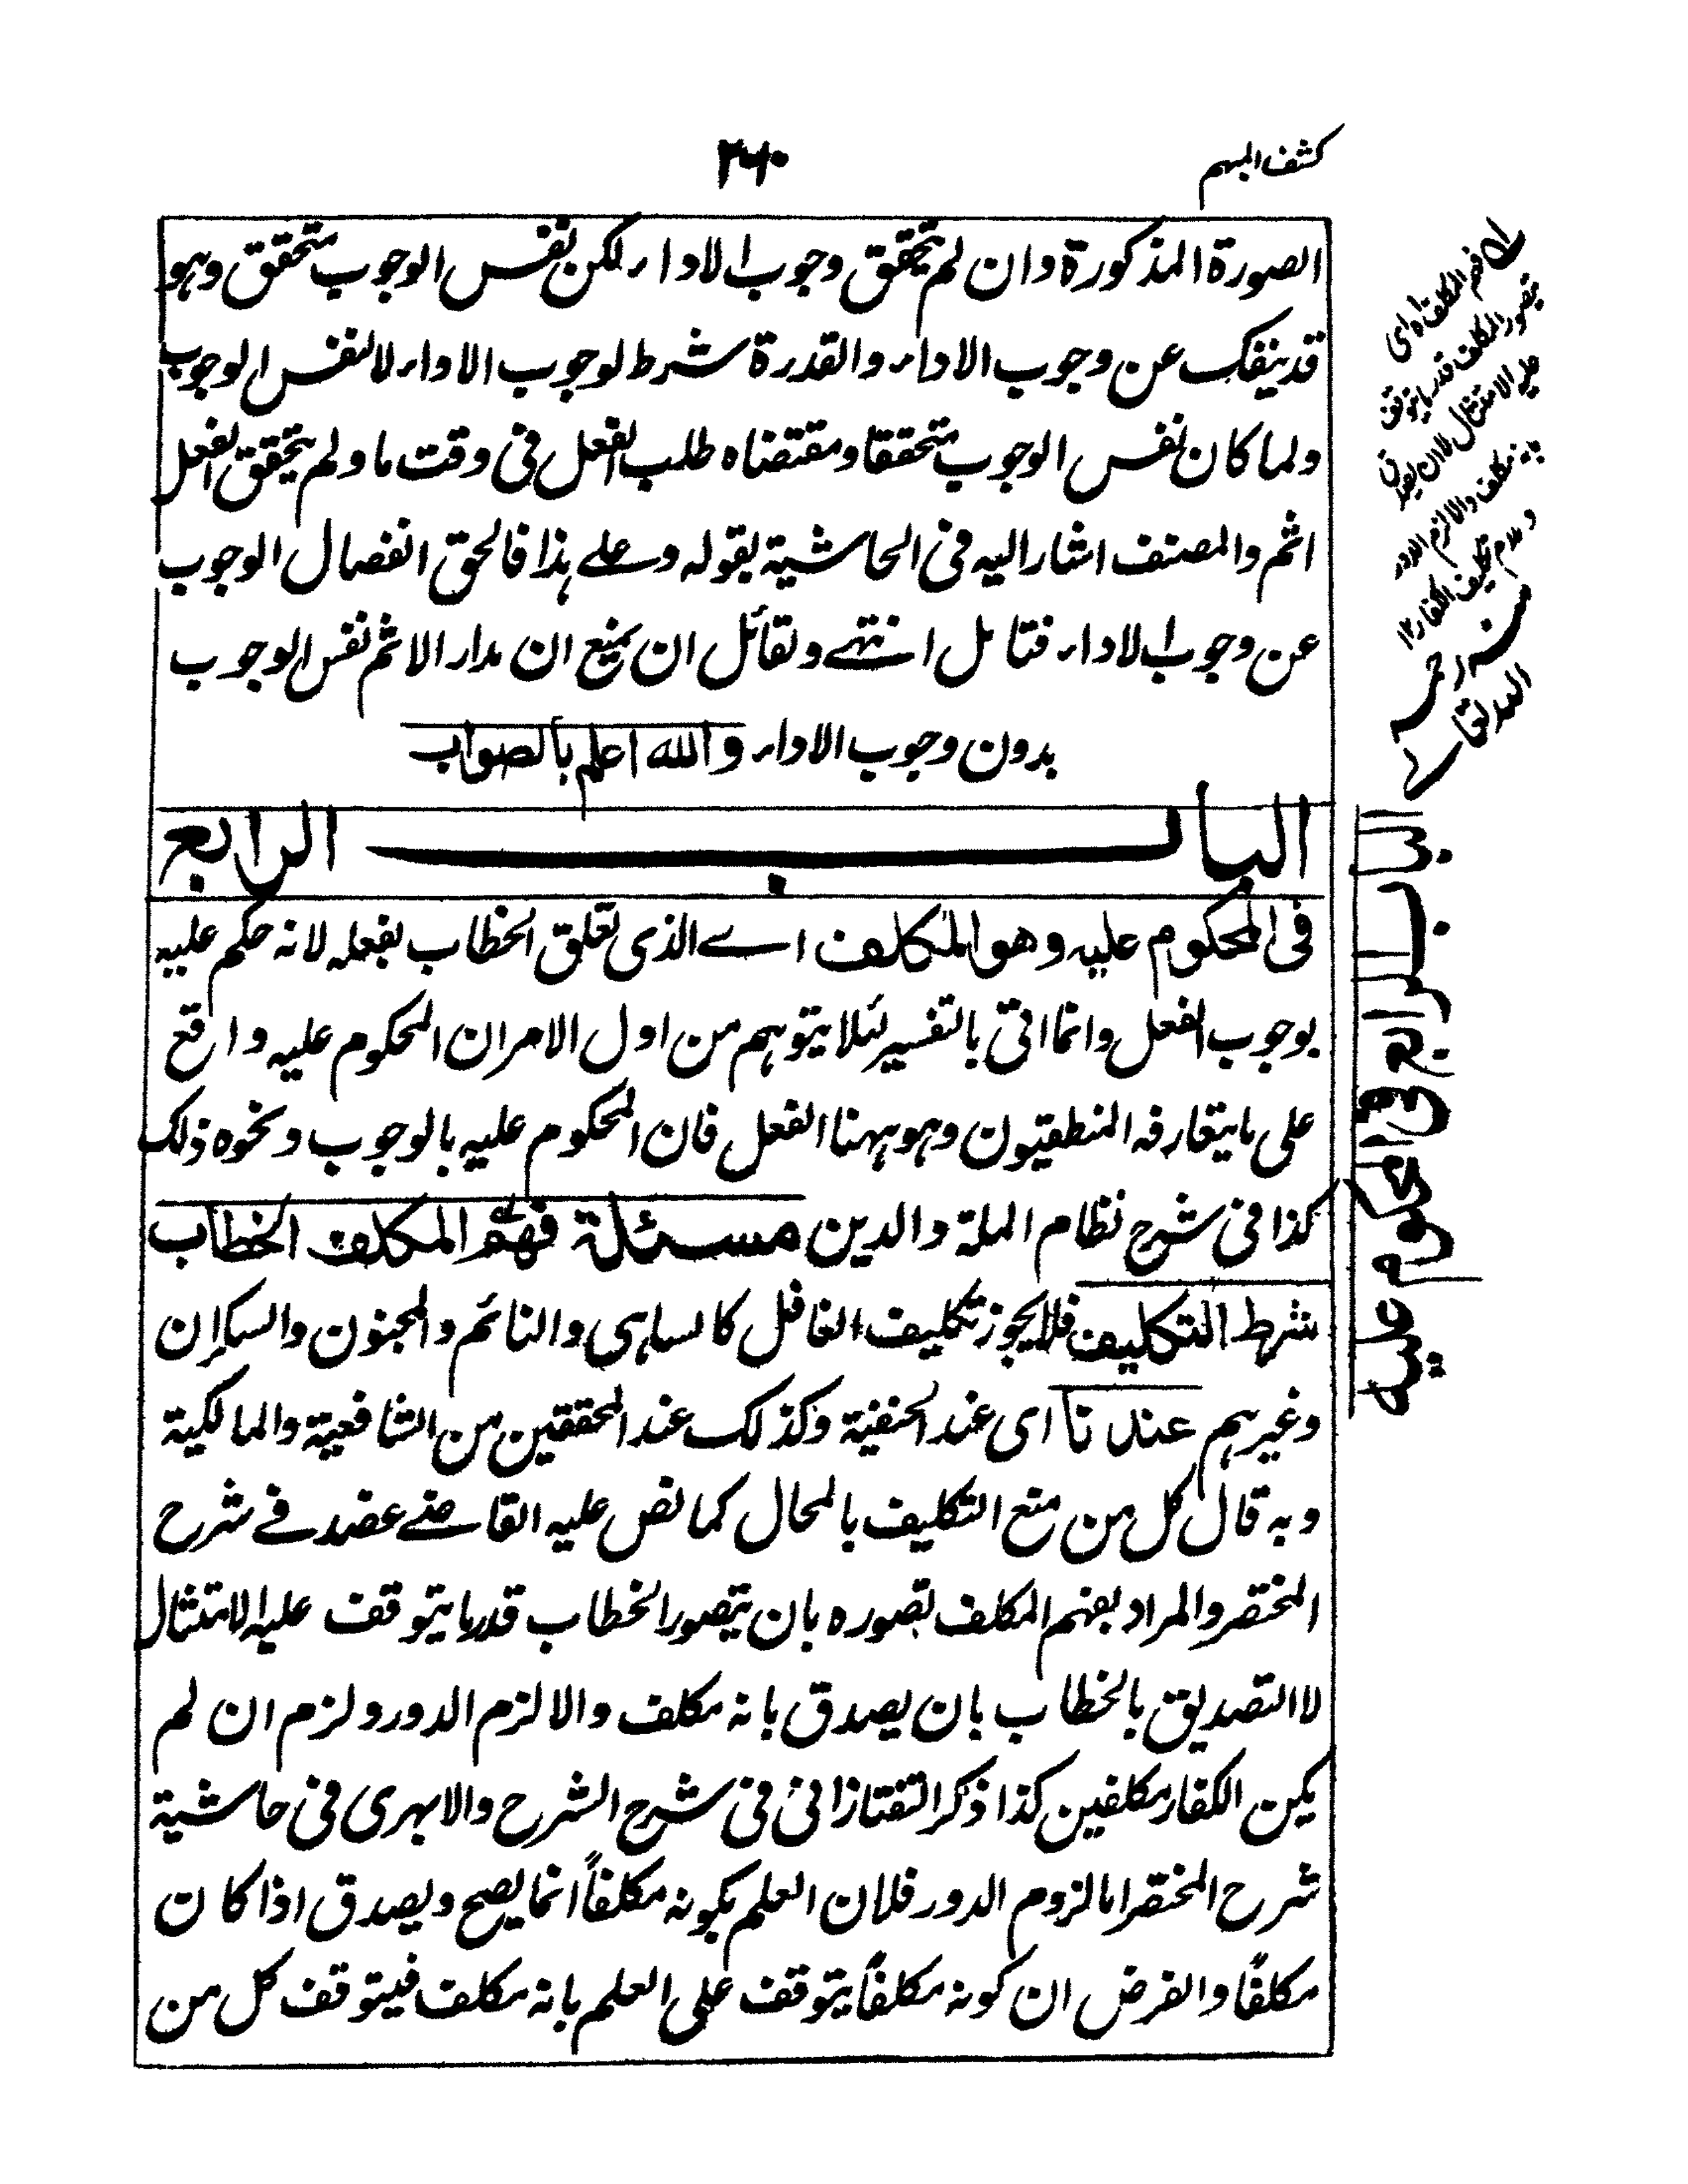 كشف المبهم
٢٦٠
الصورة المذكورة وان لم يتحقق وجوب الاداء لكن نفس الوجوب متحقق وهو
قد ينفك عن وجوب الاداء والقدرة شرط لوجوب الاداء لا لنفس الوجوب
ولما كان نفس الوجوب متحققا ومقتضاه طلب الفعل فى وقت ما ولم يتحقق الفعل
اثم والمصنف اشار اليه فى الحاشية بقوله وعلى هذا فالحق انفصال الوجوب
عن وجوب الاداء فتامل انتهى ولقائل ان يمنع ان مدار الاثم نفس الوجوب
بدون وجوب الاداء والله اعلم بالصواب
الباب الرابع
فى المحكوم عليه وهو المكلف اے الذى تعلق الخطاب بفعله لانه حكم عليه
بوجوب الفعل وانما اتى بالتفسير لئلا يتوهم من اول الامر ان المحكوم عليه واقع
على ما يتعارفه المنطقيون وهو ههنا الفعل فان المحكوم عليه بالوجوب ونحوه ذلك
كذا فى شرح نظام الملة والدين مسئلة فهم المكلف الخطاب
شرط التكليف فلا يجوز تكليف الغافل كالساهى والنائم والمجنون والسكران
وغيرهم عندنا اى عند الحنفية وكذلك عند المحققين من الشافعية والمالكية
وبه قال كل من منع التكليف بالمحال كما نص عليه القاضے عضد فے شرح
المختصر والمراد بفهم المكلف تصوره بان يتصور الخطاب قدر ما يتوقف عليه الامتثال
لا التصديق بالخطاب بان يصدق بانه مكلف والا لزم الدور ولزم ان لم
يكن الكفار مكلفين كذا ذكر التفتازانى فى شرح الشرح والابهرى فى حاشية
شرح المختصر اما لزوم الدور فلان العلم بكونه مكلفاً انما يصح ويصدق اذا كان
مكلفًا والفرض ان كونه مكلفًا يتوقف على العلم بانه مكلف فيتوقف كل من
فهم المكلف اه اى
يتصور المكلف قدر ما يتوقف
عليه الامتثال لا ان يصدق
بانه مكلف والا لزم الدور
وعدم تكليف الكفار ١٢
منه رحمه
الله تعالى
الباب الرابع فى المحكوم عليه